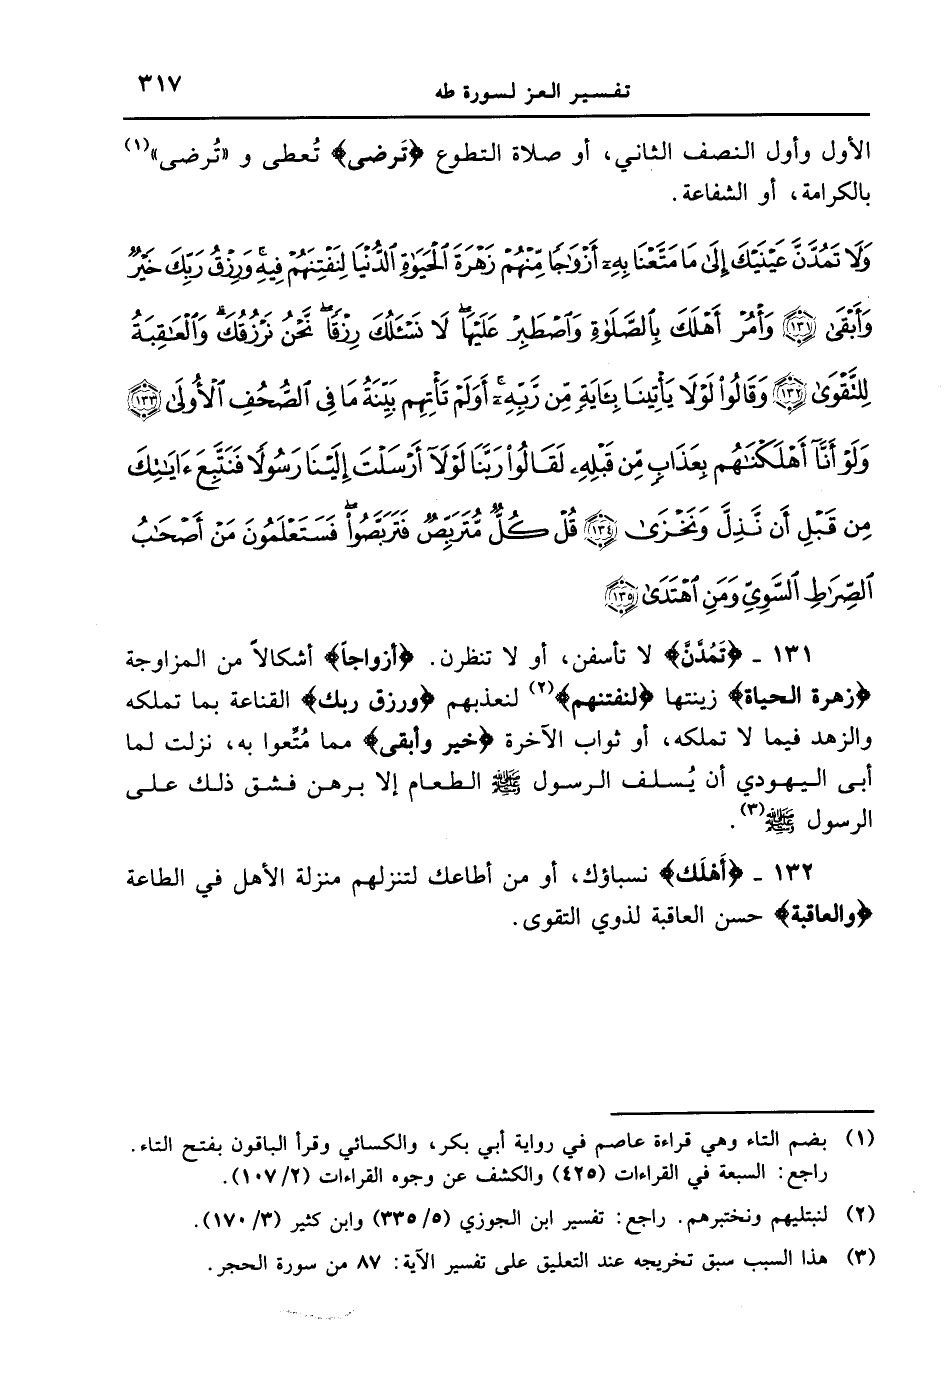 تفسير العز لسورة طه ٣١٧
الأول وأول النصف الثاني، أو صلاة التطوع ﴿تَرضى﴾ تُعطى و «تُرضى»(١)
بالكرامة، أو الشفاعة.
وَلَا تَمُدَّنَّ عَيْنَيْكَ إِلَىٰ مَا مَتَّعْنَا بِهِۦٓ أَزْوَٰجًا مِّنْهُمْ زَهْرَةَ ٱلْحَيَوٰةِ ٱلدُّنْيَا لِنَفْتِنَهُمْ فِيهِ ۚ وَرِزْقُ رَبِّكَ خَيْرٌ
وَأَبْقَىٰ ﴿١٣١﴾ وَأْمُرْ أَهْلَكَ بِٱلصَّلَوٰةِ وَٱصْطَبِرْ عَلَيْهَا ۖ لَا نَسْـَٔلُكَ رِزْقًا ۖ نَّحْنُ نَرْزُقُكَ ۗ وَٱلْعَٰقِبَةُ
لِلتَّقْوَىٰ ﴿١٣٢﴾ وَقَالُوا۟ لَوْلَا يَأْتِينَا بِـَٔايَةٍ مِّن رَّبِّهِۦٓ ۚ أَوَلَمْ تَأْتِهِم بَيِّنَةُ مَا فِى ٱلصُّحُفِ ٱلْأُولَىٰ ﴿١٣٣﴾
وَلَوْ أَنَّآ أَهْلَكْنَٰهُم بِعَذَابٍ مِّن قَبْلِهِۦ لَقَالُوا۟ رَبَّنَا لَوْلَآ أَرْسَلْتَ إِلَيْنَا رَسُولًا فَنَتَّبِعَ ءَايَٰتِكَ
مِن قَبْلِ أَن نَّذِلَّ وَنَخْزَىٰ ﴿١٣٤﴾ قُلْ كُلٌّ مُّتَرَبِّصٌ فَتَرَبَّصُوا۟ ۖ فَسَتَعْلَمُونَ مَنْ أَصْحَٰبُ
ٱلصِّرَٰطِ ٱلسَّوِىِّ وَمَنِ ٱهْتَدَىٰ ﴿١٣٥﴾
١٣١ - ﴿تَمُدَّنَّ﴾ لا تأسفن، أو لا تنظرن. ﴿أزواجاً﴾ أشكالاً من المزاوجة
﴿زهرة الحياة﴾ زينتها ﴿لنفتنهم﴾(٢) لنعذبهم ﴿ورزق ربك﴾ القناعة بما تملكه
والزهد فيما لا تملكه، أو ثواب الآخرة ﴿خير وأبقى﴾ مما مُتِّعوا به، نزلت لما
أبى اليهودي أن يُسلف الرسول ﷺ الطعام إلا برهن فشق ذلك على
الرسول ﷺ(٣).
١٣٢ - ﴿أَهْلَكَ﴾ نسباؤك، أو من أطاعك لتنزلهم منزلة الأهل في الطاعة
﴿والعاقبة﴾ حسن العاقبة لذوي التقوى.
(١) بضم التاء وهي قراءة عاصم في رواية أبي بكر، والكسائي وقرأ الباقون بفتح التاء.
راجع: السبعة في القراءات (٤٢٥) والكشف عن وجوه القراءات (١٠٧/٢).
(٢) لنبتليهم ونختبرهم. راجع: تفسير ابن الجوزي (٣٣٥/٥) وابن كثير (١٧٠/٣).
(٣) هذا السبب سبق تخريجه عند التعليق على تفسير الآية: ٨٧ من سورة الحجر.